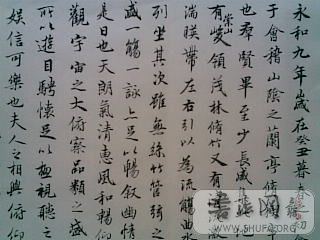 永和九年歲在癸丑暮春
于會稽山陰之蘭亭脩
也羣賢畢至少長咸集
有崇山峻領茂林脩竹又有清流激
湍暎帶左右引以為流觴曲水
列坐其次雖無絲竹管弦之
盛一觴一詠亦足以暢叙幽情
是日也天朗氣清惠風和暢仰
觀宇宙之大俯察品類之盛
所以遊目騁懷足以極視聽之
娛信可樂也夫人之相與俯仰